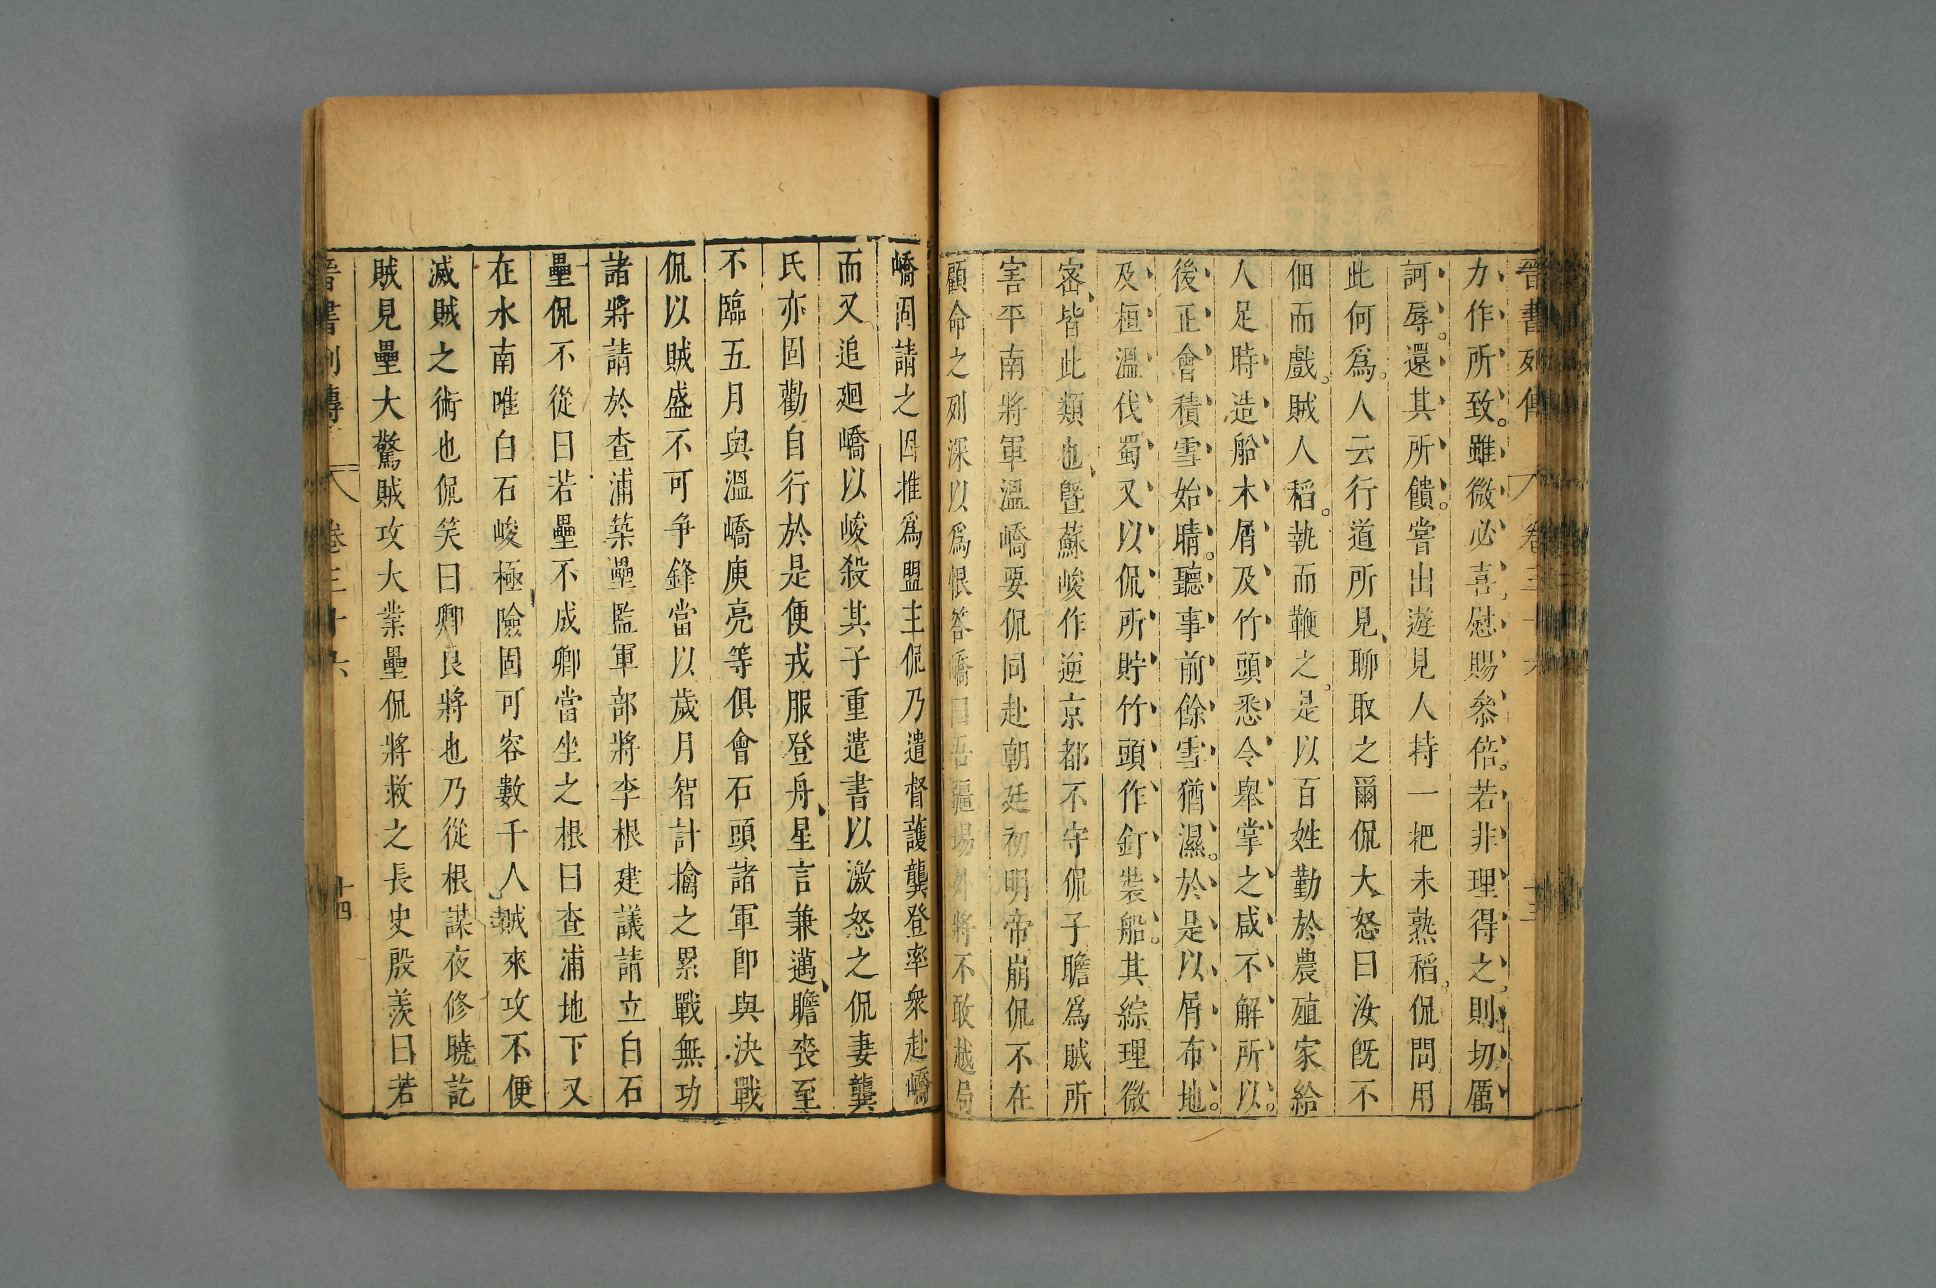 晉書列傳 卷三十六 十三
力作所致。雖微必喜。慰賜叅倍。若非理得之。則切厲
訶辱。還其所饋。嘗出遊見人持一把未熟稻。侃問用
此何爲。人云行道所見、聊取之爾侃大怒曰汝旣不
佃而戲。賊人稻。執而鞭之。是以百姓勤於農殖家給
人足時造船木屑及竹頭悉令舉掌之咸不解所以。
後正會積雪始晴。聽事前餘雪猶濕。於是以屑布地。
及桓溫伐蜀又以侃所貯竹頭作釘裝船。其綜理微
密、皆此類也、曁蘇峻作逆京都不守侃子瞻爲賊所
害平南將軍溫嶠要侃同赴朝廷初明帝崩侃不在
顧命之列深以爲恨答嶠曰吾疆場外將不敢越局
嶠固請之因推爲盟主侃乃遣督護龔登率衆赴嶠
而又追廻嶠以峻殺其子重遣書以激怒之侃妻龔
氏亦固勸自行於是便戎服登舟、星言兼邁、瞻喪至
不臨五月與溫嶠庾亮等俱會石頭諸軍卽與決戰
侃以賊盛不可争鋒當以歲月智計擒之累戰無功
諸將請於查浦築壘監軍部將李根建議請立白石
壘侃不從曰若壘不成卿當坐之根曰查浦地下又
在水南唯白石峻極險固可容數千人賊來攻不便
滅賊之術也侃笑曰卿良將也乃從根謀夜修曉訖
賊見壘大驚賊攻大業壘侃將救之長史殷羨曰若
晉書列傳 卷三十六 十四